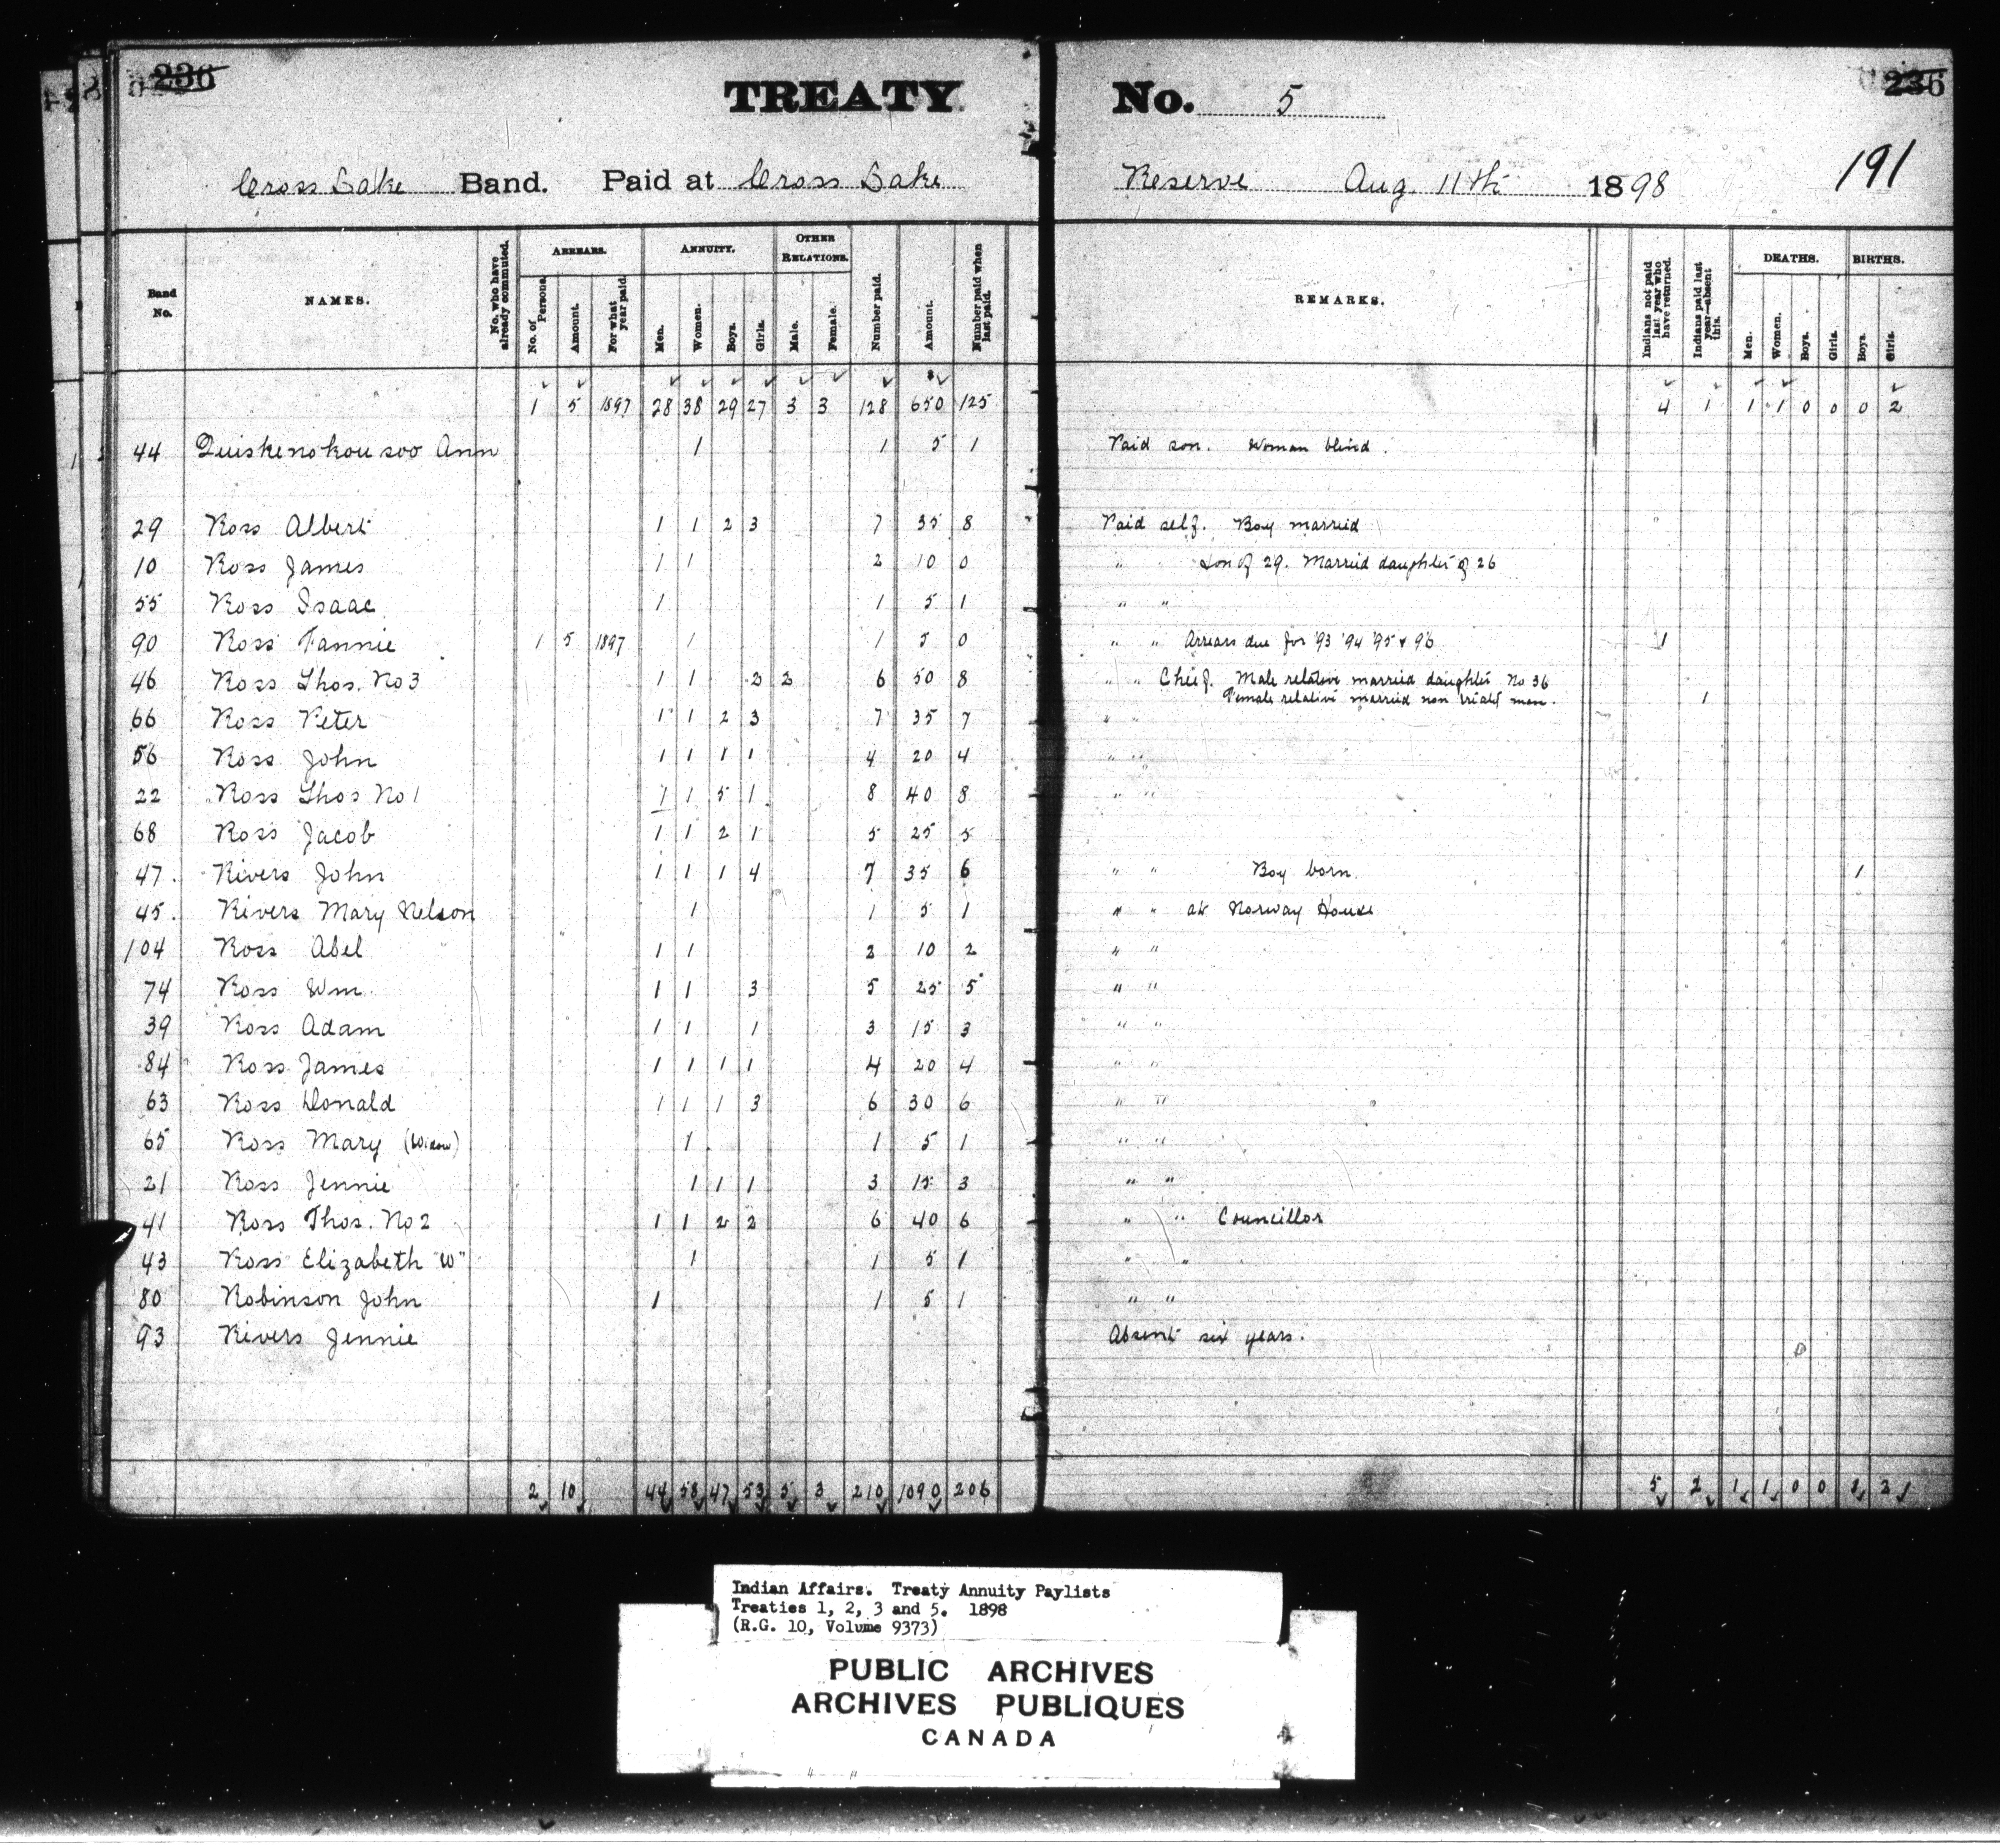 236
TREATY No. 5 236
191
Cross Lake Band. Paid at Cross Lake Reserve Aug 11th 1898
Band No. NAMES. No. who have already commuted. ARREARS. No. of Persons. Amount. For what year paid. ANNUITY. Men. Women. Boys. Girls. OTHER RELATIONS. Male. Female. Number paid. Amount. Number paid when last paid. REMARKS. Indians not paid last year who have returned. Indians paid last year—absent this. DEATHS. Men. Women. Boys. Girls. BIRTHS. Boys. Girls.
1 5 1897 28 38 29 27 3 3 128 $650 125 4 1 1 1 0 0 0 2
44 Quiskenokousoo Ann 1 1 5 1 Paid son. Woman blind.
29 Ross Albert 1 1 2 3 7 35 8 Paid self. Boy married
10 Ross James 1 1 2 10 0 " Son of 29. Married daughter of 26
55 Ross Isaac 1 1 5 1 " "
90 Ross Fannie 1 5 1897 1 1 5 0 " " Arrears due for '93 '94 '95 & 96 1
46 Ross Thos. No 3 1 1 2 2 6 50 8 " " Chief. Male relative married daughter No 36
Female relative married non treaty man. 1
66 Ross Peter 1 1 2 3 7 35 7 " "
56 Ross John 1 1 1 1 4 20 4 " "
22 Ross Thos No 1 1 1 5 1 8 40 8 " "
68 Ross Jacob 1 1 2 1 5 25 5
47. Rivers John 1 1 1 4 7 35 6 " " Boy born. 1
45. Rivers Mary Nelson 1 1 5 1 " " at Norway House
104 Ross Abel 1 1 2 10 2 " "
74 Ross Wm. 1 1 3 5 25 5 " "
39 Ross Adam 1 1 1 3 15 3 " "
84 Ross James 1 1 1 1 4 20 4 " "
63 Ross Donald 1 1 1 3 6 30 6 " "
65 Ross Mary (Widow) 1 1 5 1 " "
21 Ross Jennie 1 1 1 3 15 3 " "
41 Ross Thos. No 2 1 1 2 2 6 40 6 " " Councillor
43 Ross Elizabeth "W" 1 1 5 1 " "
80 Robinson John 1 1 5 1 " "
93 Rivers Jennie Absent six years.
2 10 44 58 47 53 5 3 210 1090 206 5 2 1 1 0 0 1 2
Indian Affairs. Treaty Annuity Paylists
Treaties 1, 2, 3 and 5. 1898
(R.G. 10, Volume 9373)
PUBLIC ARCHIVES
ARCHIVES PUBLIQUES
CANADA